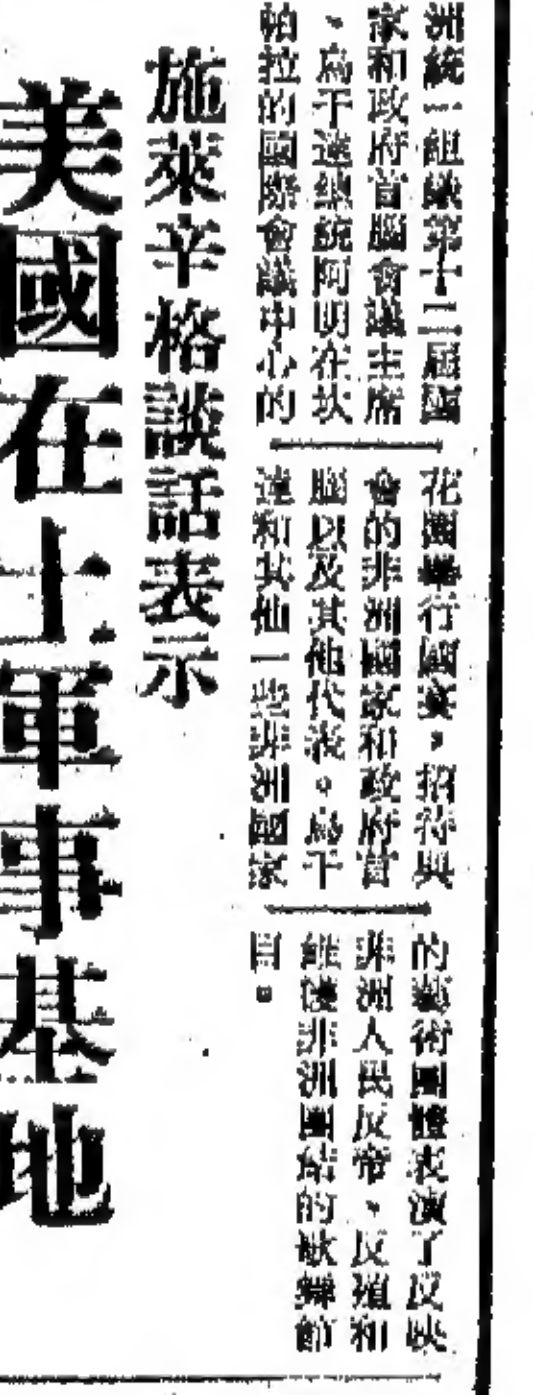 洲統一組織第十二屆國
家和政府首腦會議主席
、烏干達總統阿明在坎
帕拉的國際會議中心的
花園舉行國宴，招待與
會的非洲國家和政府首
腦以及其他代表。烏干
達和其他一些非洲國家
的藝術團體表演了反映
非洲人民反帝、反殖和
維護非洲團結的歌舞節
目。
施萊辛格談話表示
美國在土軍事基地